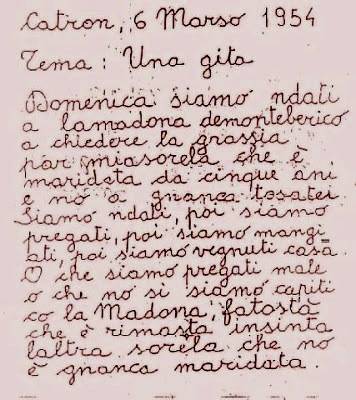 Catron, 6 Marso 1954
Tema: Una gita
Domenica siamo ndati
a lamadona demonteberico
a chiedere la grassia
par miasorela che è
maridata da cinque ani
e no à gnanca tosatei
Siamo ndati, poi siamo
pregati, poi siamo mangi
ati, poi siamo vegnuti casà.
O che siamo pregati male
o che no si siamo capiti
co la Madona, fatostà
che è rimasta insinta
laltra sorela che no
è gnanca maridata.